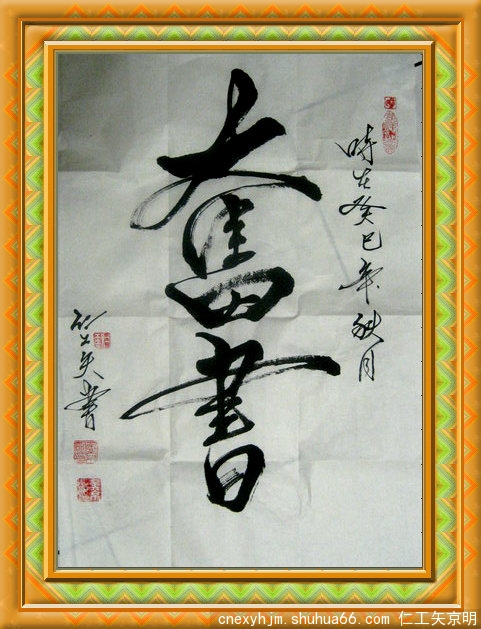 時在癸巳年秋月
奮書
仁工矢書
cnexyhjm.shuhua66.com 仁工矢京明